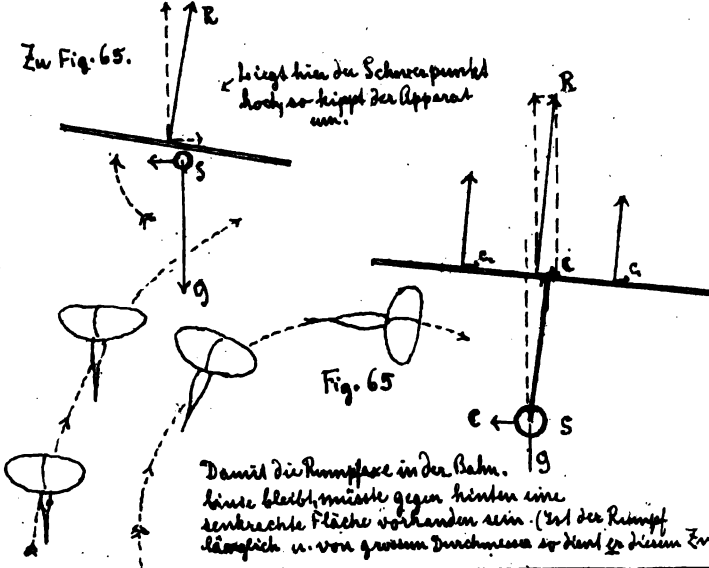 Zu Fig. 65.
R
Liegt hier der Schwerpunkt
hoch, so kippt der Apparat
um.
S
g
R
c
c
c
Fig. 65
c
S
g
Damit die Rumpfaxe in der Bahn.
linie bleibt, müsste gegen hinten eine
senkrechte Fläche vorhanden sein. (Ist der Rumpf
länglich u. von grossem Durchmesser so dient er diesem